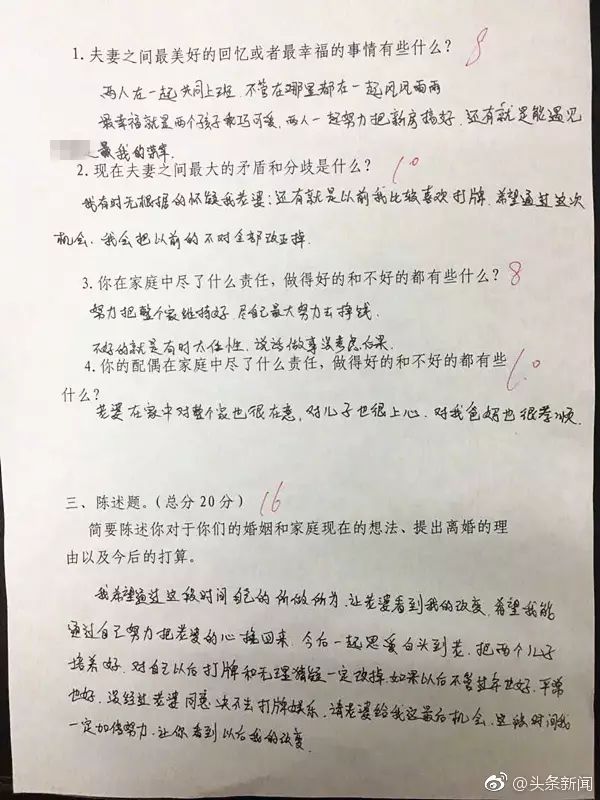 1. 夫妻之间最美好的回忆或者最幸福的事情有些什么？ 8
两人在一起共同上班，不管在哪里都在一起风风雨雨
最幸福就是两个孩子乖巧可爱，两人一起努力把新房搞好，还有就是能遇见
是我的荣幸.
2. 现在夫妻之间最大的矛盾和分歧是什么？ 10
我有时无根据的怀疑我老婆；还有就是以前我比较喜欢打牌，希望通过这次
机会，我会把以前的不对全部改正掉.
3. 你在家庭中尽了什么责任，做得好的和不好的都有些什么？ 8
努力把整个家维持好，尽自己最大努力去挣钱.
不好的就是有时太任性，说话做事没考虑后果.
4. 你的配偶在家庭中尽了什么责任，做得好的和不好的都有些
什么？ 10
老婆在家中对整个家也很在意，对儿子也很上心，对我爸妈也很孝顺.
三、陈述题。（总分20分） 16
简要陈述你对于你们的婚姻和家庭现在的想法、提出离婚的理
由以及今后的打算。
我希望通过这段时间自己的所做所为，让老婆看到我的改变，希望我能
通过自己努力把老婆的心拉回来，今后一起恩爱白头到老，把两个儿子
培养好，对自己以后打牌和无理猜疑一定改掉，如果以后不管过年也好，平常
也好，没经过老婆同意决不去打牌娱乐，请老婆给我这最后机会，这段时间我
一定加倍努力，让你看到以后我的改变.
@头条新闻